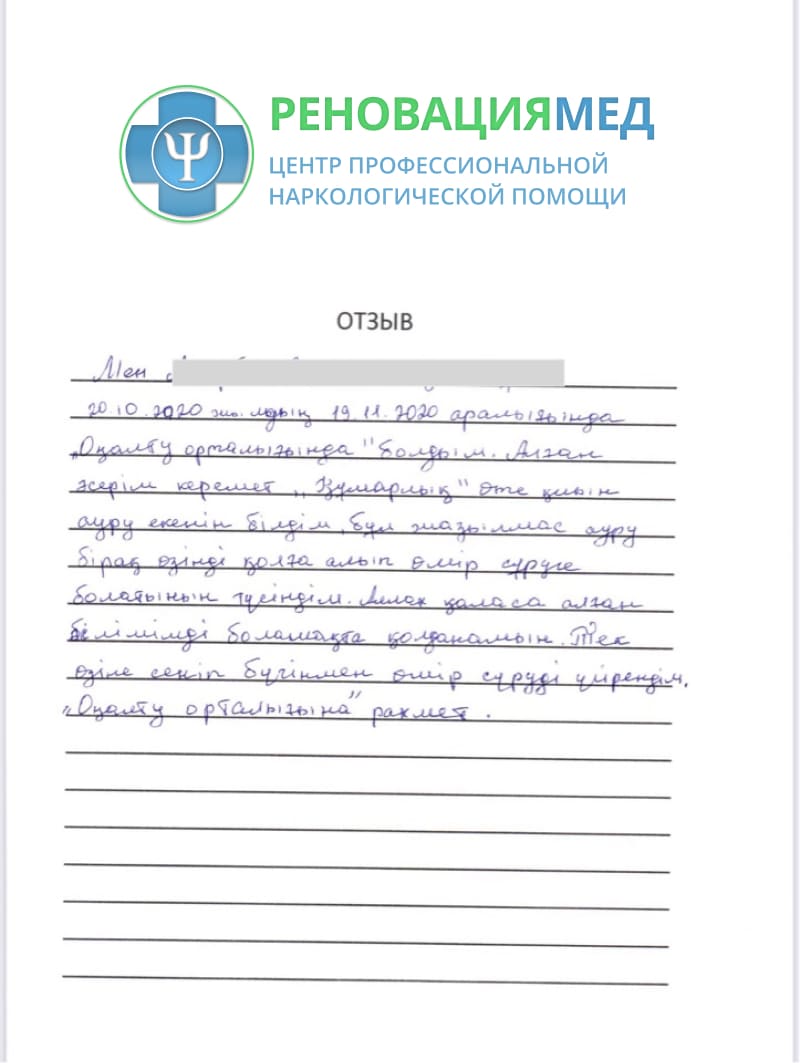 РЕНОВАЦИЯМЕД
ЦЕНТР ПРОФЕССИОНАЛЬНОЙ
НАРКОЛОГИЧЕСКОЙ ПОМОЩИ
ОТЗЫВ
Мен
20.10.2020 жылдың 19.11.2020 аралығында
„Оңалту орталығында" болдым. Алған
әсерім керемет „Құмарлық" өте қиын
ауру екенін білдім, бұл жазылмас ауру
бірақ өзінді қолға алып өмір сүруге
болатынын түсіндім. Аллах қаласа алған
білімімді болашақта қолданамын. Тек
өзіне сеніп бүгінмен өмір сүруді үйрендім.
„Оңалту орталығына" рахмет.